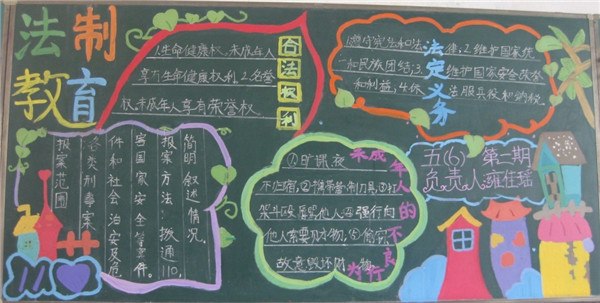 法制
教育
1.生命健康权.未成年人
享有生命健康权利.2.名誉
权.未成年人享有荣誉权.
合法权利
1.遵守宪法和法律;2.维护国家统
一和民族团结;3.维护国家安全荣誉
和利益;4.依法服兵役和纳税.
法定义务
简明叙述情况.
报案方法:拨通110.
害国家安全等案件.
件和社会治安及危
各类刑事案
报案范围
110
①旷课、夜
不归宿;②携带管制刀具;③打
架斗殴、辱骂他人;④强行向
他人索要财物;⑤偷窃、
故意毁坏财物.
未成年人的不良行为
五(6) 第二期
负责人:雍佳瑶